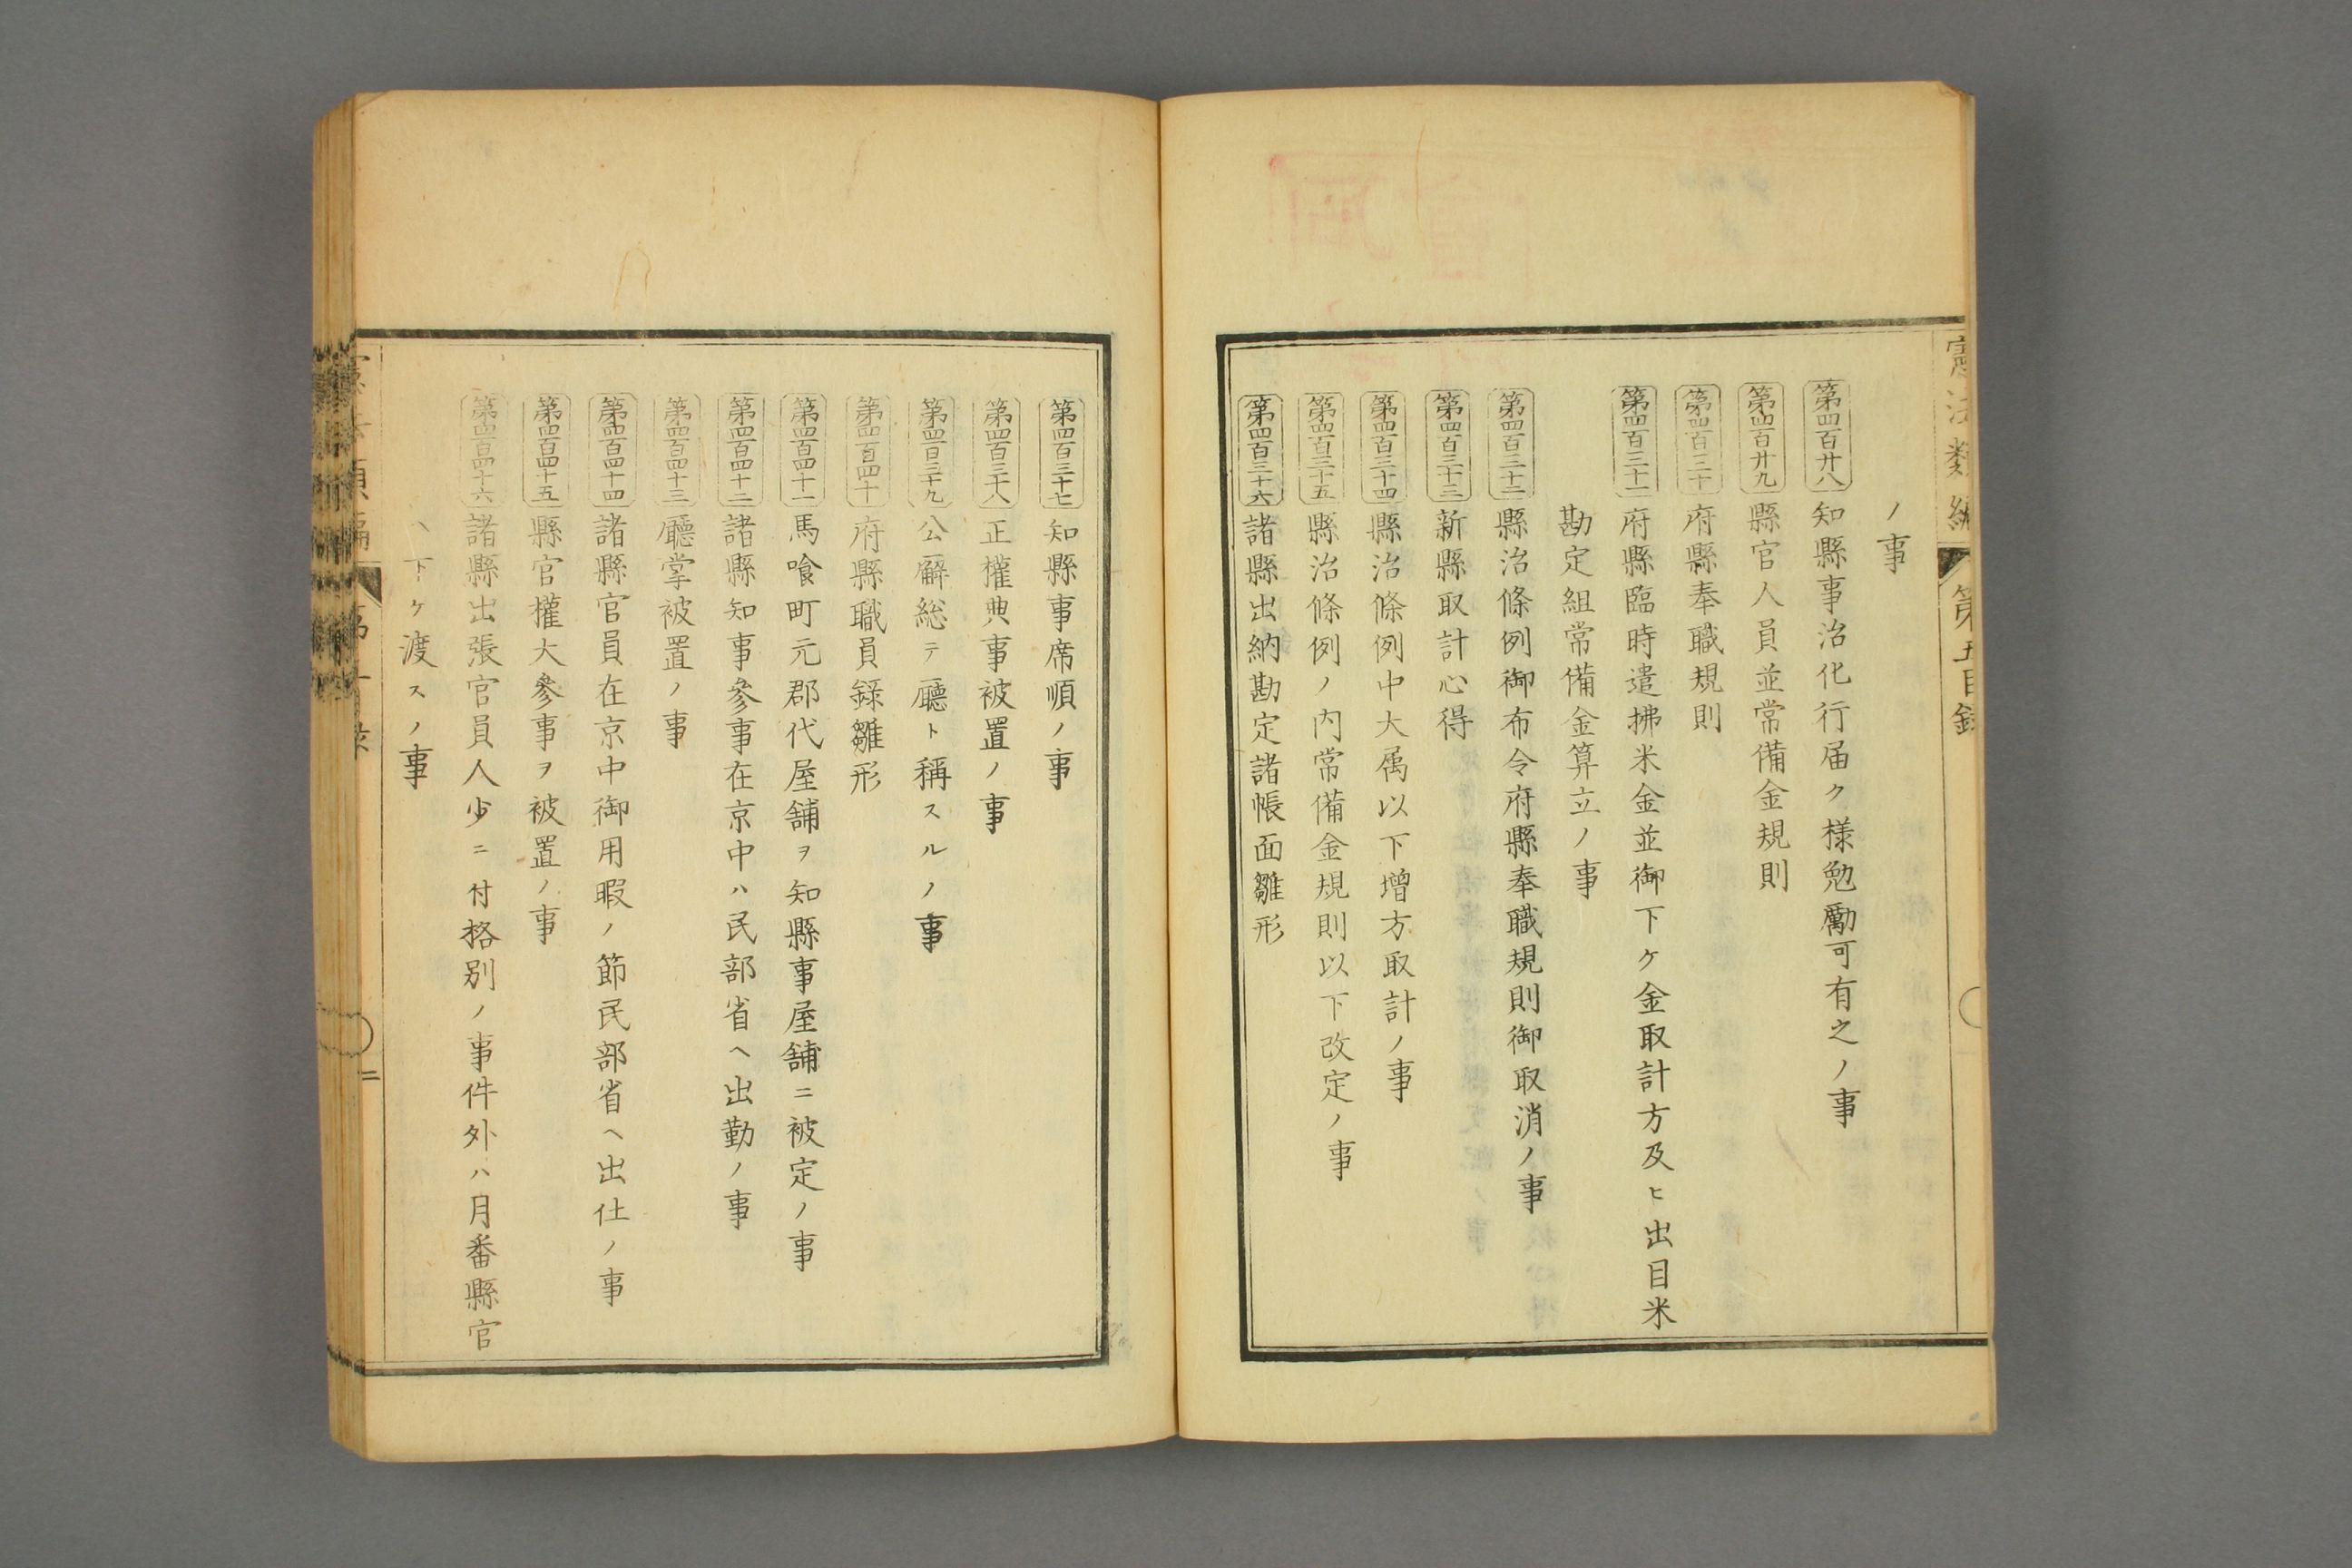 憲法類編 第五目録
ノ事
第四百廿八 知縣事治化行届ク様勉勵可有之ノ事
第四百廿九 縣官人員並常備金規則
第四百三十 府縣奉職規則
第四百三十一 府縣臨時遣拂米金並御下ケ金取計方及ヒ出目米
勘定組常備金算立ノ事
第四百三十二 縣治條例御布令府縣奉職規則御取消ノ事
第四百三十三 新縣取計心得
第四百三十四 縣治條例中大属以下增方取計ノ事
第四百三十五 縣治條例ノ内常備金規則以下改定ノ事
第四百三十六 諸縣出納勘定諸帳面雛形
第四百三十七 知縣事席順ノ事
第四百三十八 正權典事被置ノ事
第四百三十九 公廨総テ廳ト稱スルノ事
第四百四十 府縣職員錄雛形
第四百四十一 馬喰町元郡代屋舗ヲ知縣事屋舗ニ被定ノ事
第四百四十二 諸縣知事參事在京中ハ民部省ヘ出勤ノ事
第四百四十三 廳掌被置ノ事
第四百四十四 諸縣官員在京中御用暇ノ節民部省ヘ出仕ノ事
第四百四十五 縣官權大參事ヲ被置ノ事
第四百四十六 諸縣出張官員人少ニ付格别ノ事件外ハ月番縣官
ヘ下ケ渡スノ事
二